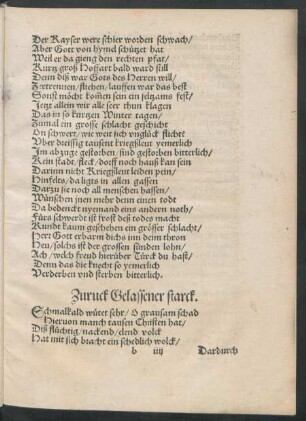 Der Kayser were schier worden schwach/
Aber Gott von hymel schützet hat
Weil er da gieng den rechten pfat/
Kurtz groß Hoffart bald ward still
Denn diß war Gots des Herren will/
Zertrennen/fliehen/lauffen war das best
Sonst möcht kosten sein ein selzams fest/
Jetzt allein wir alle seer thun klagen
Das in so kurtzen Winter tagen/
Zumal ein grosse schlacht geschicht
On schwert/wie weit sich vnglück flicht
Vber dreissig tausent kriegßleut yemerlich
Im abzuge gestorben/sind gestorben bitterlich/
Kein stadt/fleck/dorff noch hauß kan sein
Darinn nicht Kriegßleut leiden pein/
Hinfelts/da ligts in allen gassen
Darzu sie noch all menschen hassen/
Wünschen jnen mehr denn einen todt
Da bedenckt nyemand eins andern noth/
Fürs schwerdt ist frost deß todes macht
Kunde kaum geschehen ein grösser schlacht/
Herr Gott erbarm dichs inn deim thron
Heu/solchs ist der grossen sünden lohn/
Ach/welch freud hierüber Türck du hast/
Denn das die knecht so yemerlich
Verderben vnd sterben bitterlich.
Zuruck Gelassener starck.
Schmalkald wütet sehr/O grausam schad
Hieruon manch tausen Christen hat/
Diß flüchtig/nackend/elend volck
Hat mit sich bracht ein schedlich wolck/
b iiij Dardurch